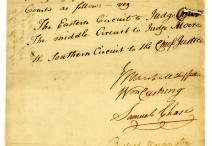 Courts as follows
The Eastern Circuit to Judge
The middle Circuit to Judge Moore
The Southern Circuit to the Chief Justice
Wm Cushing
Samuel Chase